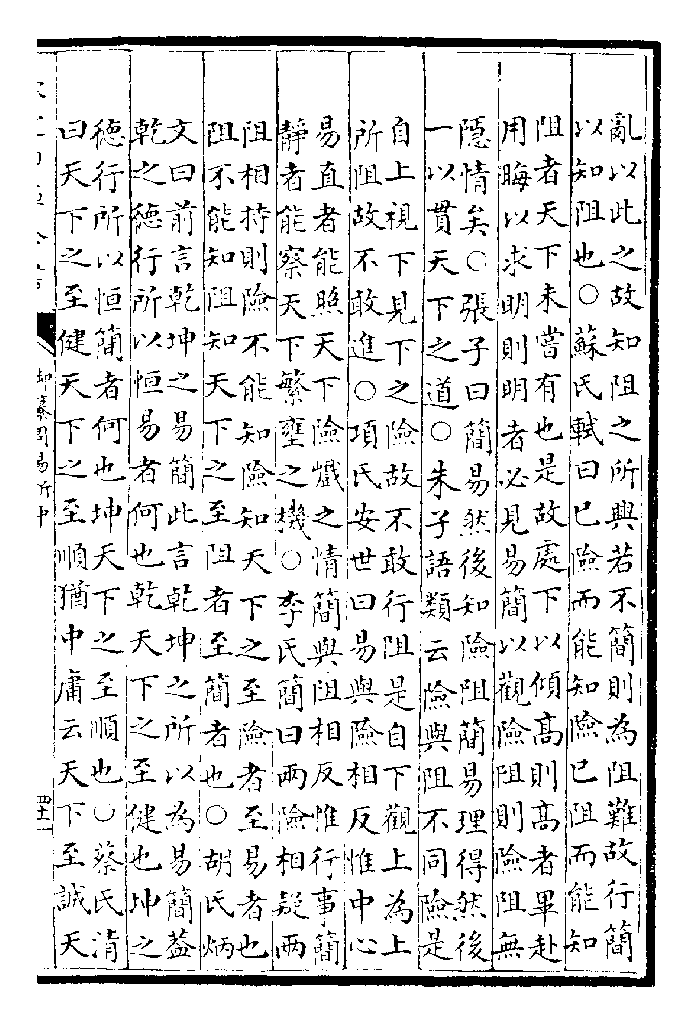 亂以此之故知阻之所興若不簡則為阻難故行簡
以知阻也○蘇氏軾曰巳險而能知險巳阻而能知
阻者天下未嘗有也是故處下以傾高則高者畢赴
用晦以求明則明者必見易簡以觀險阻則險阻無
隱情矣○張子曰簡易然後知險阻簡易理得然後
一以貫天下之道○朱子語類云險與阻不同險是
自上視下見下之險故不敢行阻是自下觀上為上
所阻故不敢進○項氏安世曰易與險相反惟中心
易直者能照天下險巇之情簡與阻相反惟行事簡
靜者能察天下繁壅之機○李氏簡曰兩險相疑兩
阻相持則險不能知險知天下之至險者至易者也
阻不能知阻知天下之至阻者至簡者也○胡氏炳
文曰前言乾坤之易簡此言乾坤之所以為易簡葢
乾之德行所以恒易者何也乾天下之至健也坤之
德行所以恒簡者何也坤天下之至順也○蔡氏清
曰天下之至健天下之至順猶中庸云天下至誠天
御纂周易折中